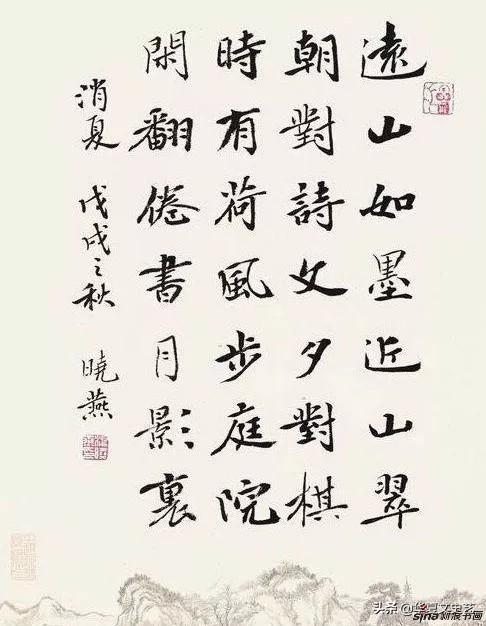 遠山如墨近山翠
朝對詩文夕對棋
時有荷風步庭院
閑翻倦書月影裏
消夏 戊戌之秋 曉燕
头条@华夏文史荟
sina 新浪书画